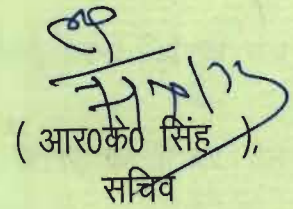 ( आर0के0 सिंह ),
सचिव